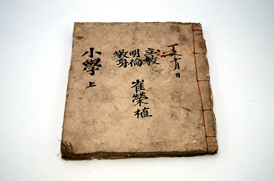 十月 日
立敎
明倫
敬身
崔榮植
小學 上